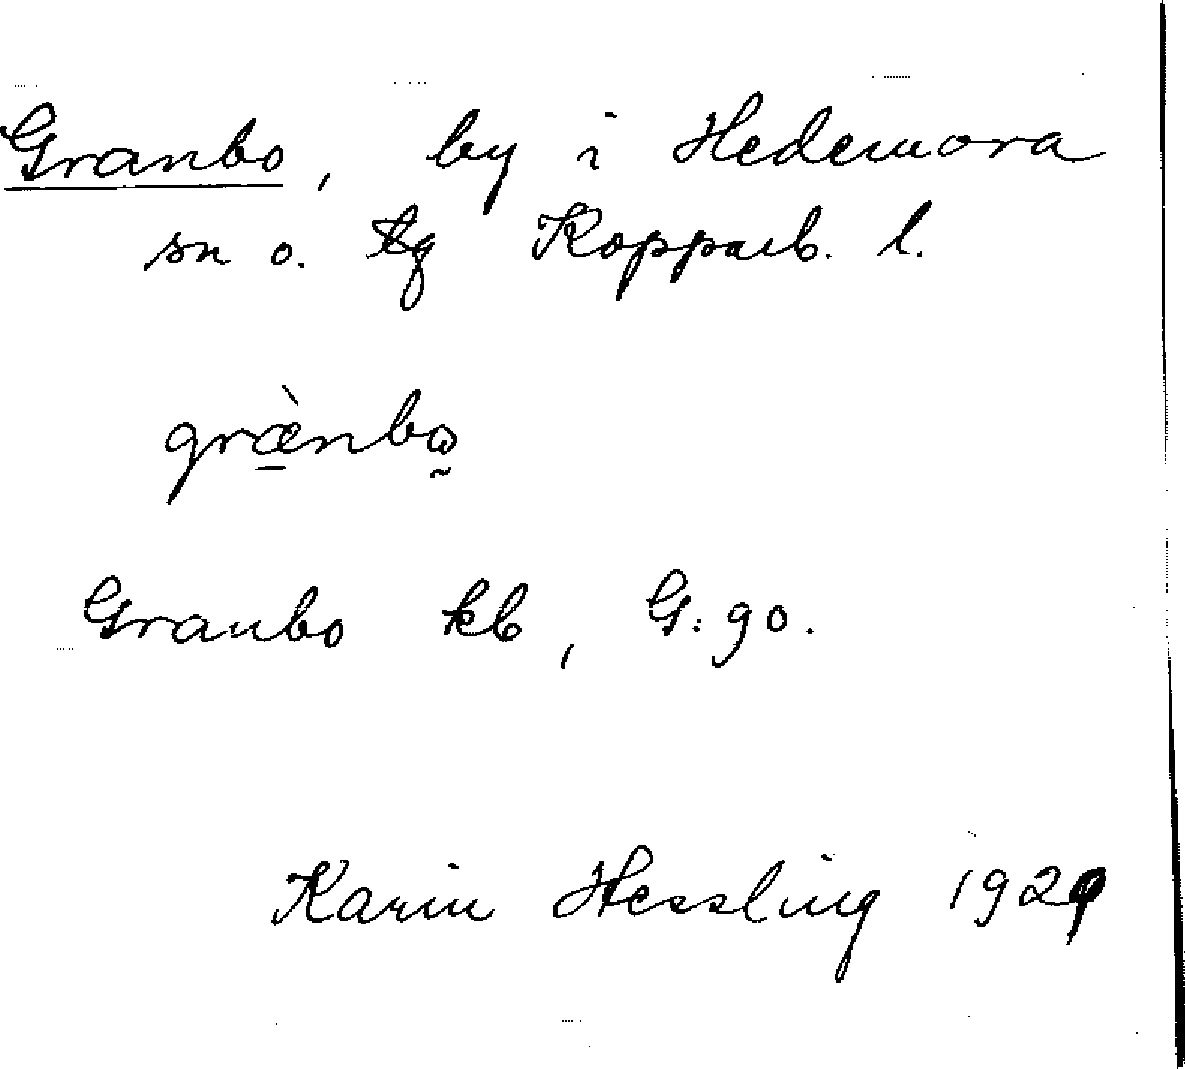 Granbo, by i Hedemora
sn o. tg Kopparb. l.
græ̠̀nbo̰
Granbo kb, G:go.
Karin Hessling 1929